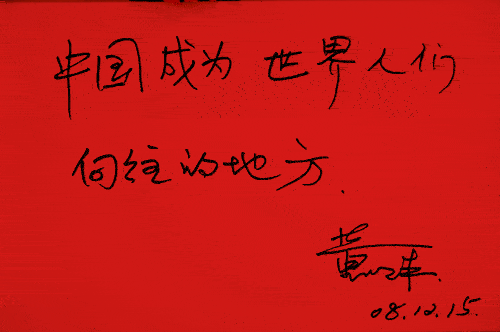 中国成为世界人们
向往的地方.
08.12.15.